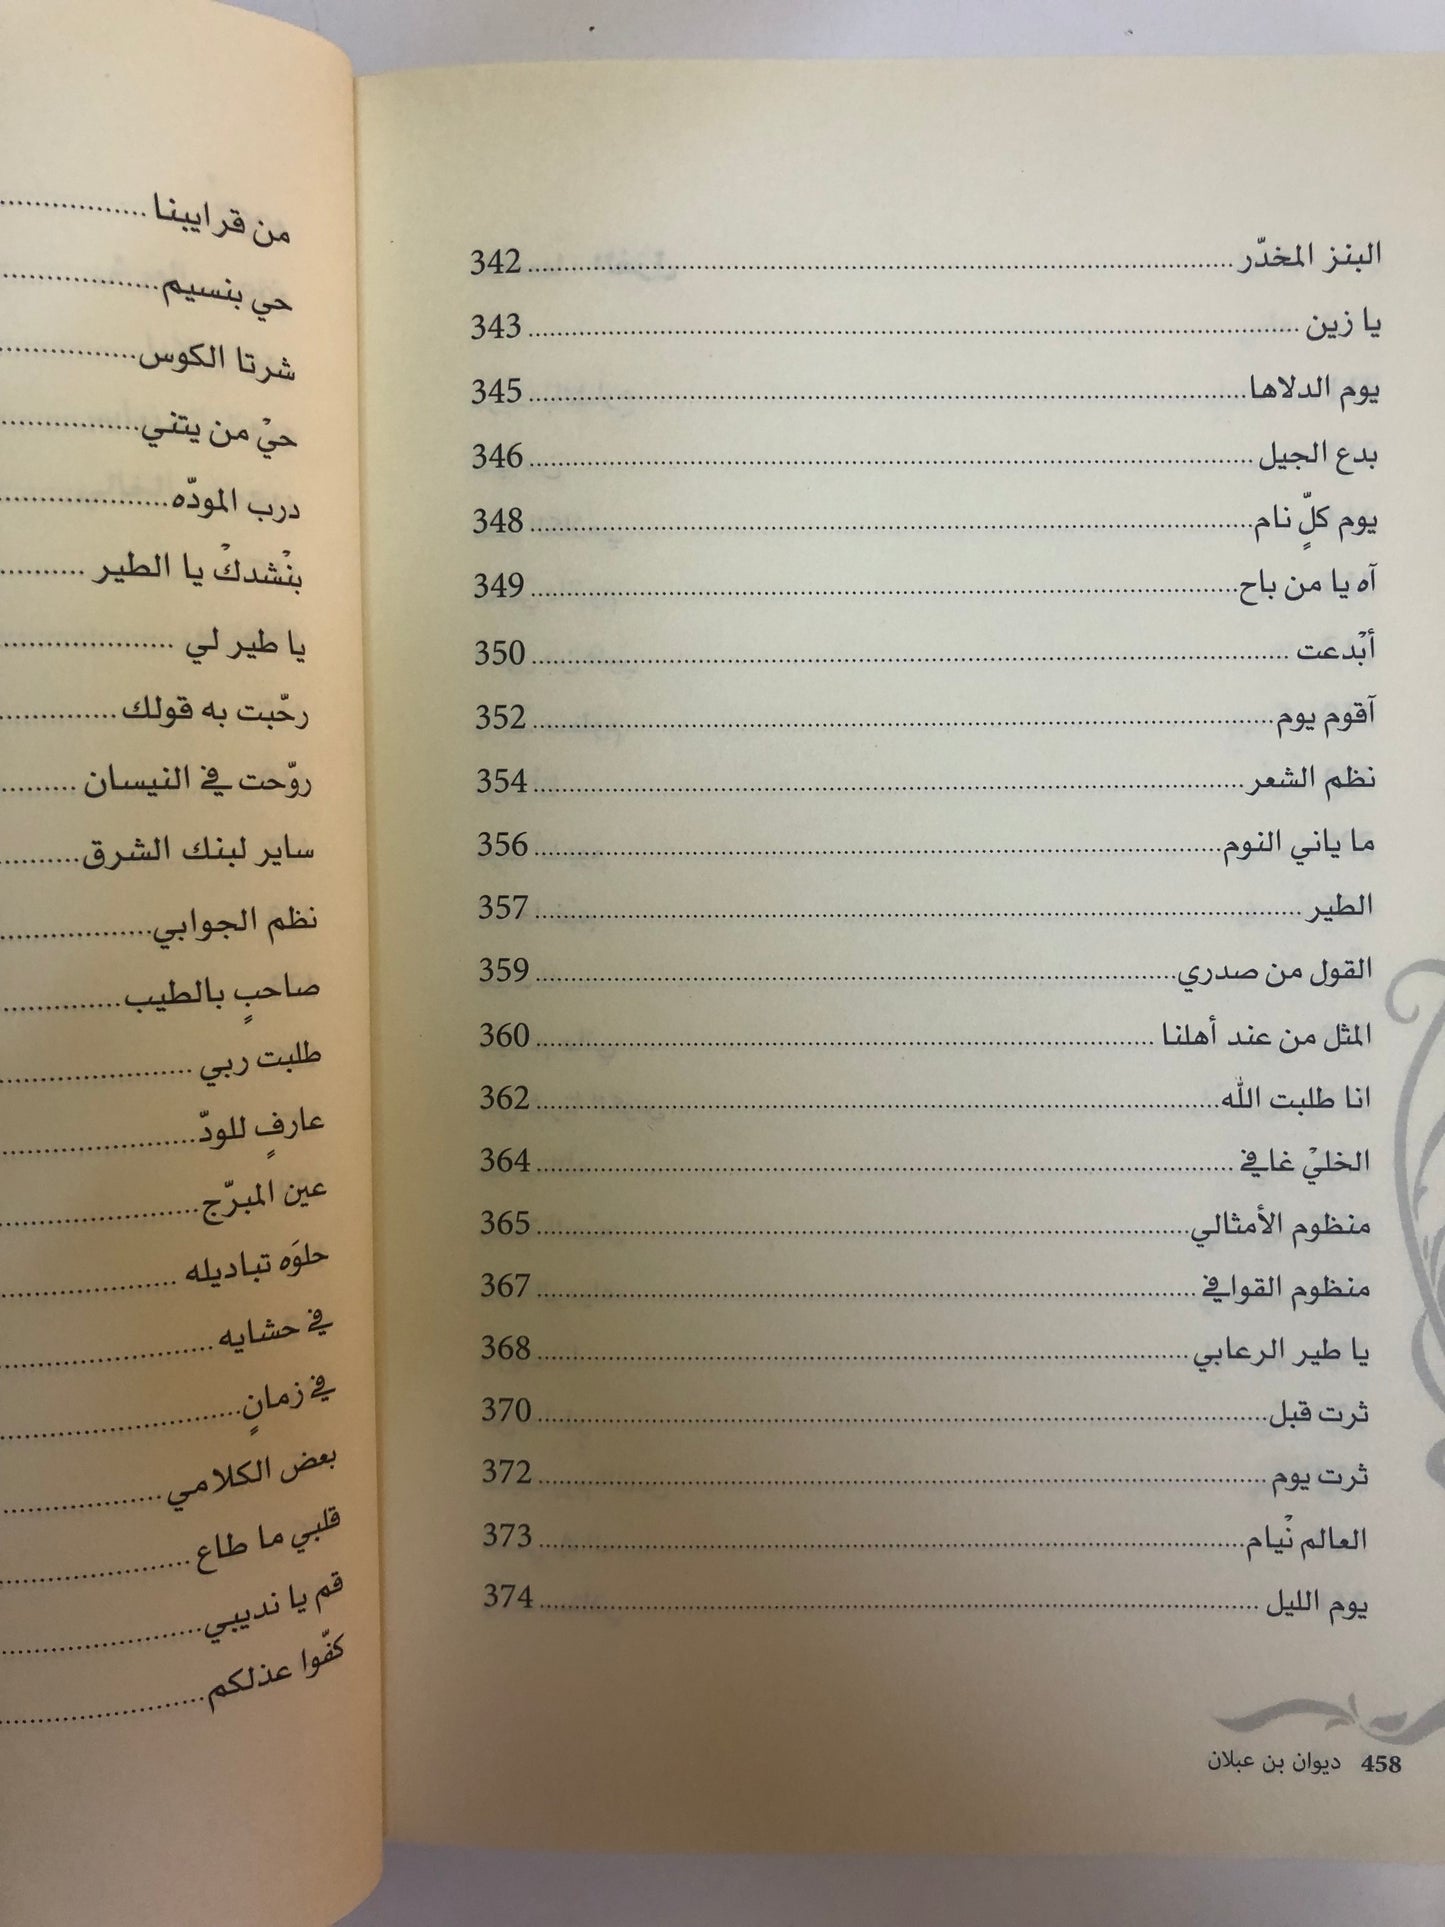 البنز المخدّر 342
يا زين 343
يوم الدلاها 345
بدع الجيل 346
يوم كلٍّ نام 348
آه يا من باح 349
أبْدعت 350
آقوم يوم 352
نظم الشعر 354
ما ياني النوم 356
الطير 357
القول من صدري 359
المثل من عند أهلنا 360
انا طلبت الله 362
الخليْ غافي 364
منظوم الأمثالي 365
منظوم القوافي 367
يا طير الرعابي 368
ثرت قبل 370
ثرت يوم 372
العالم نْيام 373
يوم الليل 374
458 ديوان بن عبلان
من قرايبنا
حي بنسيم
شرتا الكوس
حيْ من يتني
درب المودّه
بنْشدكْ يا الطير
يا طير لي
رحّبت به قولك
روّحت في النيسان
ساير لبنك الشرق
نظم الجوابي
صاحبٍ بالطيب
طلبت ربي
عارفٍ للودّ
عين المبرّج
حلوَه تباديله
في حشايه
في زمانٍ
بعض الكلامي
قلبي ما طاع
قم يا نديبي
كفّوا عذلكم